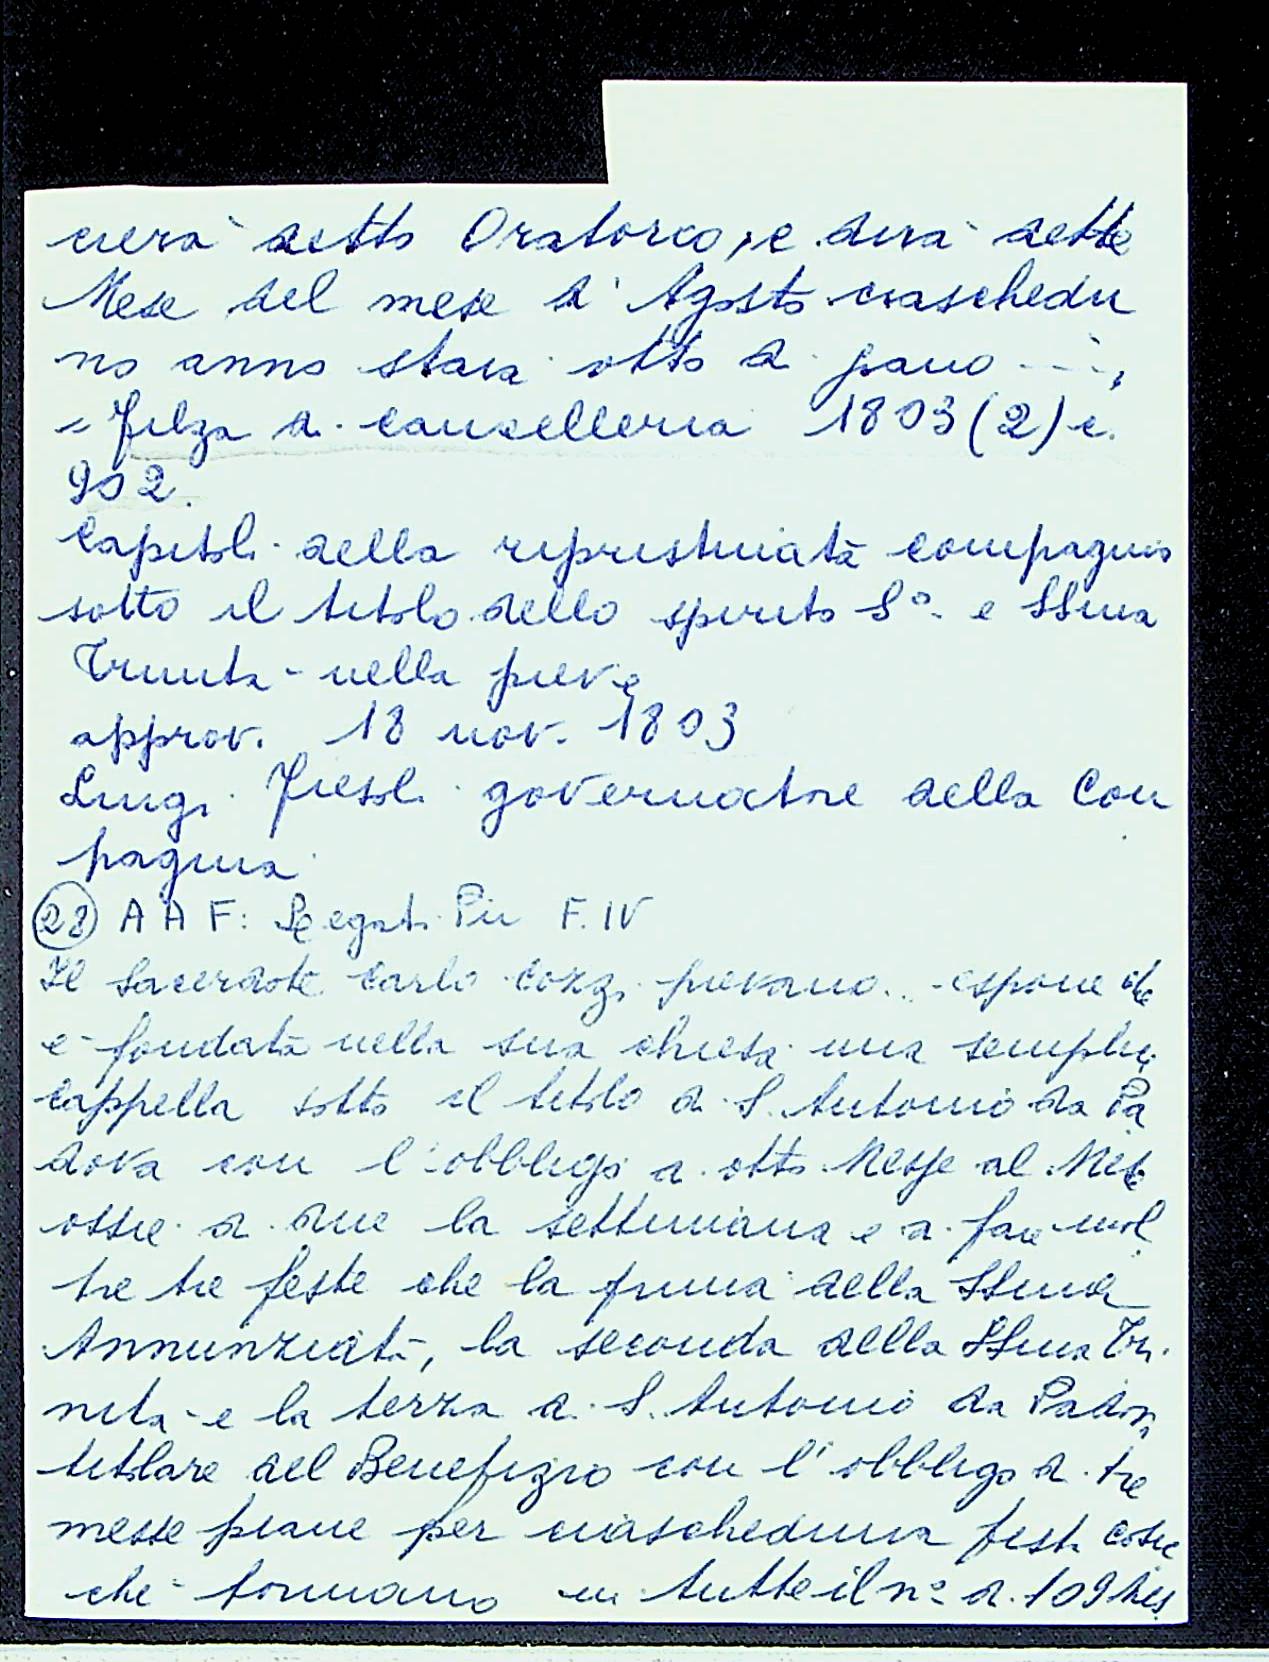 cierà detto Oratorio, e darà dette
Messe del mese d'Agosto ciaschedu
no anno staia otto di grano ---,
= Filza di cancelleria 1803 (2) c.
902.
Capitoli della ripristinata compagnia
sotto il titolo dello spirito S° e SSma
Trinità nella pieve
approv. 18 nov. 1803
Luigi Fiesoli governatore della Com
pagnia
(28) AAF: Legati Pii F. IV
Il Sacerdote Carlo Cozzi pievano... espone che
è fondata nella sua chiesa una semplice
cappella sotto il titolo di S. Antonio da Pa
dova con l'obbligo di otto Messe al Mese
ossie di due la settimana e di fare inol
tre tre feste che la prima della SSma
Annunziata, la seconda della SSma Tri
nità e la terza di S. Antonio da Padova
titolare del Benefizio con l'obbligo di tre
messe piane per ciascheduna festa cosic
che formano in tutte il n° di 109 Mes